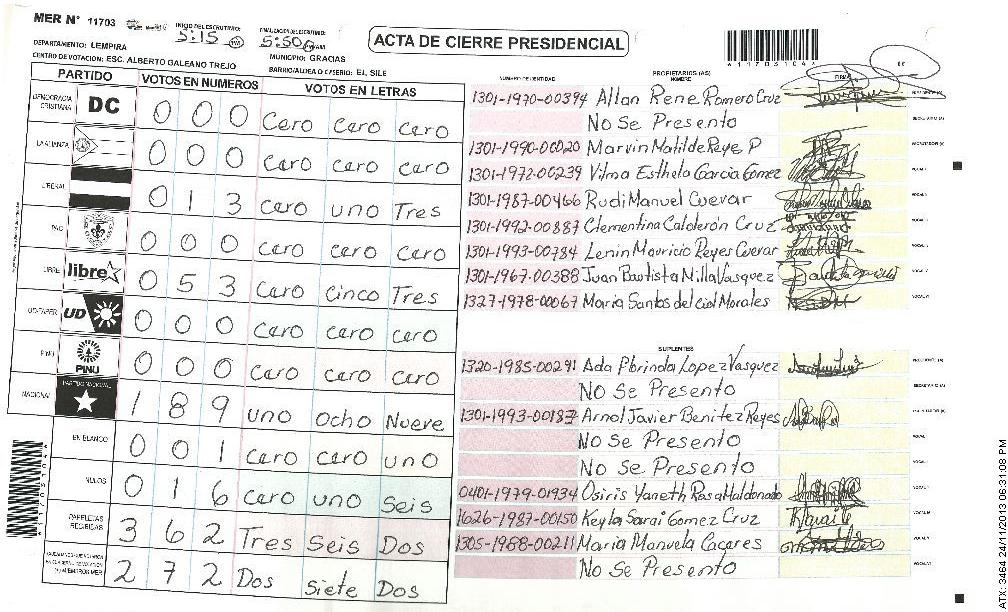 MER N° 11703
INICIO DEL ESCRUTINIO
5:15 PM
FINALIZACION DEL ESCRUTINIO
5:50
ACTA DE CIERRE PRESIDENCIAL
A117031044
DEPARTAMENTO: LEMPIRA
MUNICIPIO: GRACIAS
CENTRO DE VOTACION: ESC. ALBERTO GALEANO TREJO
BARRIO/ALDEA O CASERIO: EL SILE
PARTIDO VOTOS EN NUMEROS VOTOS EN LETRAS
DEMOCRACIA CRISTIANA DC 0 0 0 Cero cero cero
LA ALIANZA 0 0 0 cero cero cero
LIBERAL 0 1 3 cero uno Tres
PAC 0 0 0 cero cero cero
LIBRE libre 0 5 3 cero cinco Tres
UD-FAPER UD 0 0 0 cero cero cero
PINU PINU 0 0 0 cero cero cero
NACIONAL PARTIDO NACIONAL 1 8 9 uno ocho Nueve
EN BLANCO 0 0 1 cero cero uno
NULOS 0 1 6 cero uno Seis
PAPELETAS RECIBIDAS 3 6 2 Tres Seis Dos
2 7 2 Dos siete Dos
NUMERO DE IDENTIDAD
PROPIETARIOS (AS)
NOMBRE
FIRMA
1301-1970-00394 Allan Rene Romero Cruz
No Se Presento
1301-1990-00020 Marvin Matilde Reye P
1301-1972-00239 Vilma Esthela Garcia Gomez
1301-1987-00466 Rudi Manuel Cuevar
1301-1992-00887 Clementina Calderón Cruz
1301-1993-00784 Lenin Mauricio Reyes Cuevar
1301-1967-00388 Juan Bautista Milla Vasquez
1327-1978-00067 Maria Santos del cid Morales
SUPLENTES
1320-1985-00291 Ada Florinda Lopez Vasquez
No Se Presento
1301-1993-00187 Arnol Javier Benitez Reyes
No Se Presento
No Se Presento
0401-1979-01934 Osiris Yaneth Rosa Maldonado
1626-1987-00150 Keyla Sarai Gomez Cruz
1305-1988-00211 Maria Manuela Caçares
No Se Presento
A117031044
ATX: 3464 24/11/2013 06:31:08 PM